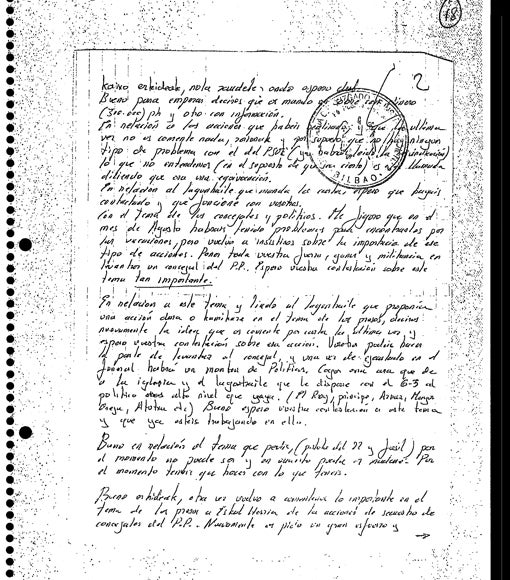 18
2
kaixo askideak, nola zaudete? ondo espero dut.
Bueno para empezar deciros que os mando un sobre con dinero
(300.000) ph y otro con información.
En relación a las acciones que habeis realizado, y que la ultima
vez no os comente nada, y por supuesto que no hay ningun
tipo de problema con el del PSOE (ya habreis leido la
lo que no entendimos (en el supuesto de que sea cierto) es la llamada
diciendo que era una equivocación.
En relación al laguntzaile que manda la carta, espero que hayais
contactado y que funcione con vosotros.
Con el tema de los concejales y politicos. Me figuro que en el
mes de Agosto habeis tenido problemas para encontrarlos por
sus vacaciones, pero vuelvo a insistiros sobre la importancia de ese
tipo de acciones. Poner toda vuestra fuerza, ganas y militancia en
levantar un concejal del P.P. Espero vuestra contestación sobre este
tema tan importante.
En relación a este tema y liado al laguntzaile que proponia
una acción dura o kamikaze en el tema de los presos, deciros
nuevamente la idea que os comente por carta la ultima vez y
espero vuestra contestación sobre esa accion. Vosotros podriais hacer
la parte de levantar al concejal, y una vez de ejecutarlo en el
funeral habra un monton de Politicos,
a la iglesia y el laguntzaile que le dispare con el G-3 al
politico mas alto nivel que vaya. (El Rey, principe, Aznar, Mayor
Oreja, Atotxa etc) Bueno espero vuestra contestacion a este tema
y que ya esteis trabajando en ello.
Bueno en relación al tema que pedis, (pistola del 22 y fusil) por
el momento no puede ser y en cuanto pueda os mandaré. Por
el momento teneis que hacer con lo que teneis.
Bueno askideak, otra vez vuelvo a comentaros lo importante en el
tema de los presos a Eskal Herria de la acciones de secuestro de
concejales del P.P.. Nuevamente os pido un gran esfuerzo y
JUZGADO
BILBAO